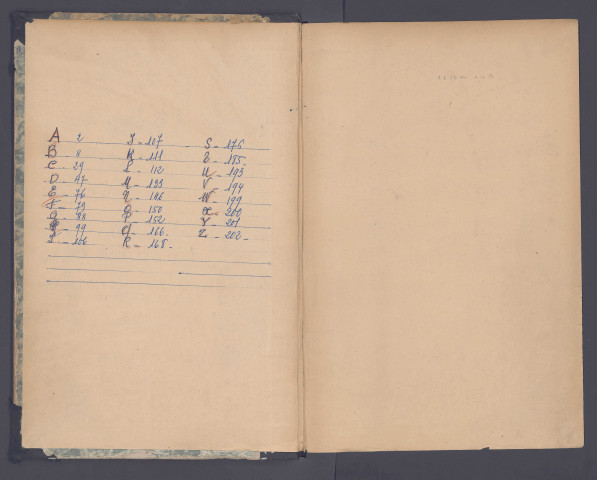 A 2 J - 107 S - 176
B 8 K - 111 T - 185
C - 29 L - 112 U - 193
D - 47 M - 133 V - 194
E - 76 N - 146 W - 199
F - 79 O - 150 X - 200
G - 88 P - 152 Y - 201
H - 99 Q - 166 Z - 202
I - 106 R - 168